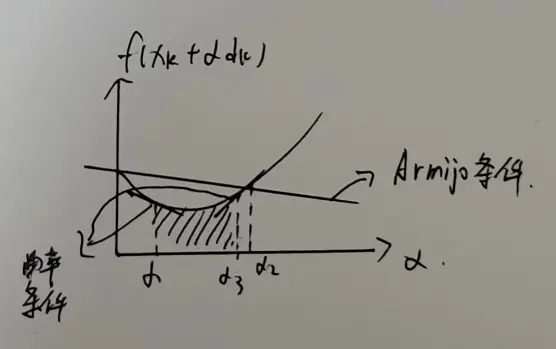 f(xk+αdk)
Armijo条件.
曲率
条件
α1
α3
α2
α.